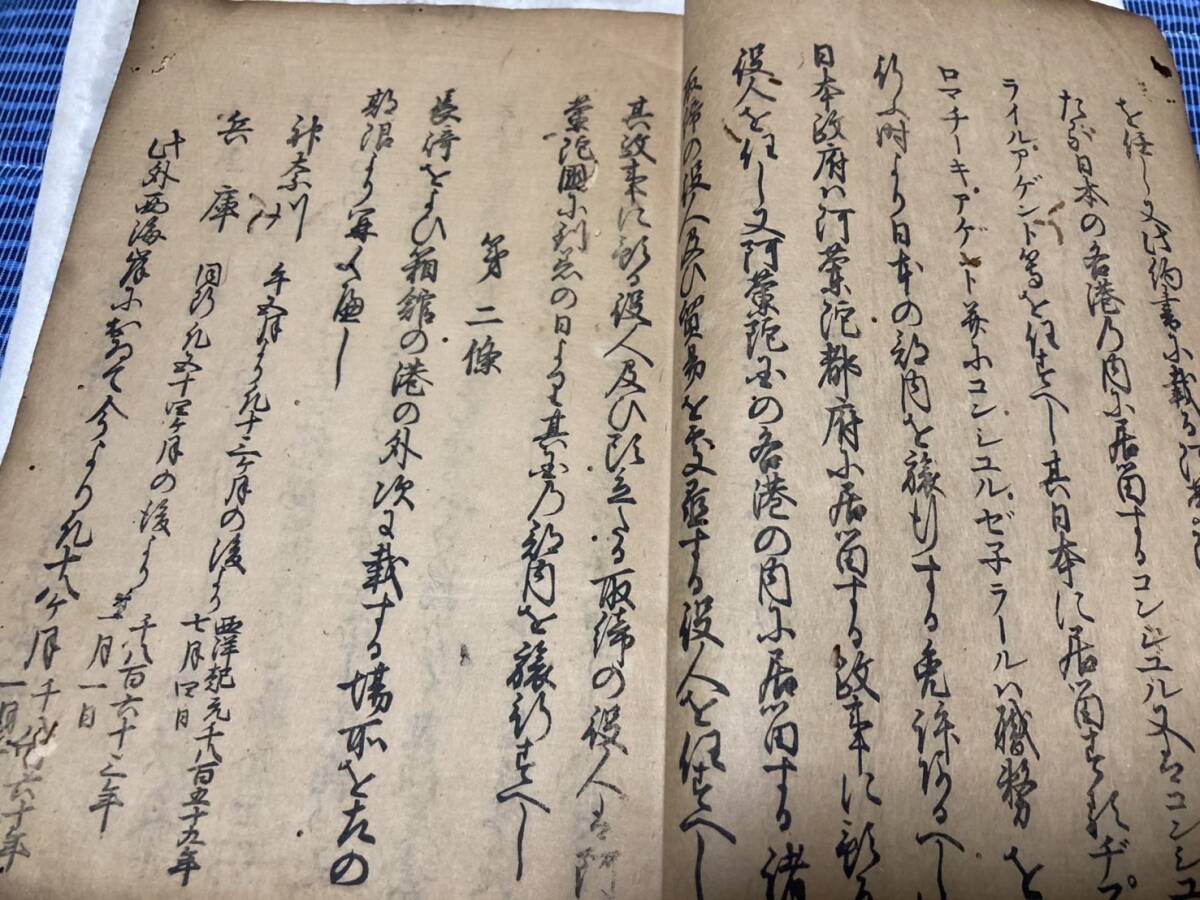 を任し又此約書に載る阿蘭陀
たが日本の各港の内に居留するコンシユル又はコンシユ
ライルアゲント等を任すへし其日本に居留するヂプ
ロマチーキアケント并にコンシユルゼ子ラールは職務を
行ふ時より日本の部内を旅行する免許あるへし
日本政府は阿蘭陀都府に居留する政事に預る
役人を任し又阿蘭陀国の各港の内に居留する諸
取締の役人及ひ貿易を処置する役人を任すへし
其政事に預る役人及ひ頭立たる取締の役人は阿
蘭陀国に到着の日より其国の部内を旅行すへし
第二條
長崎および箱館の港の外次に載する場所を左の
期限より開くへし
神奈川 午五月より凡十三ヶ月の後より 西洋紀元千八百五十九年七月四日
兵庫 同断凡五十四ヶ月の後より 千八百六十三年第一月一日
此外西海岸において今より凡十八ヶ月 千八百六十年